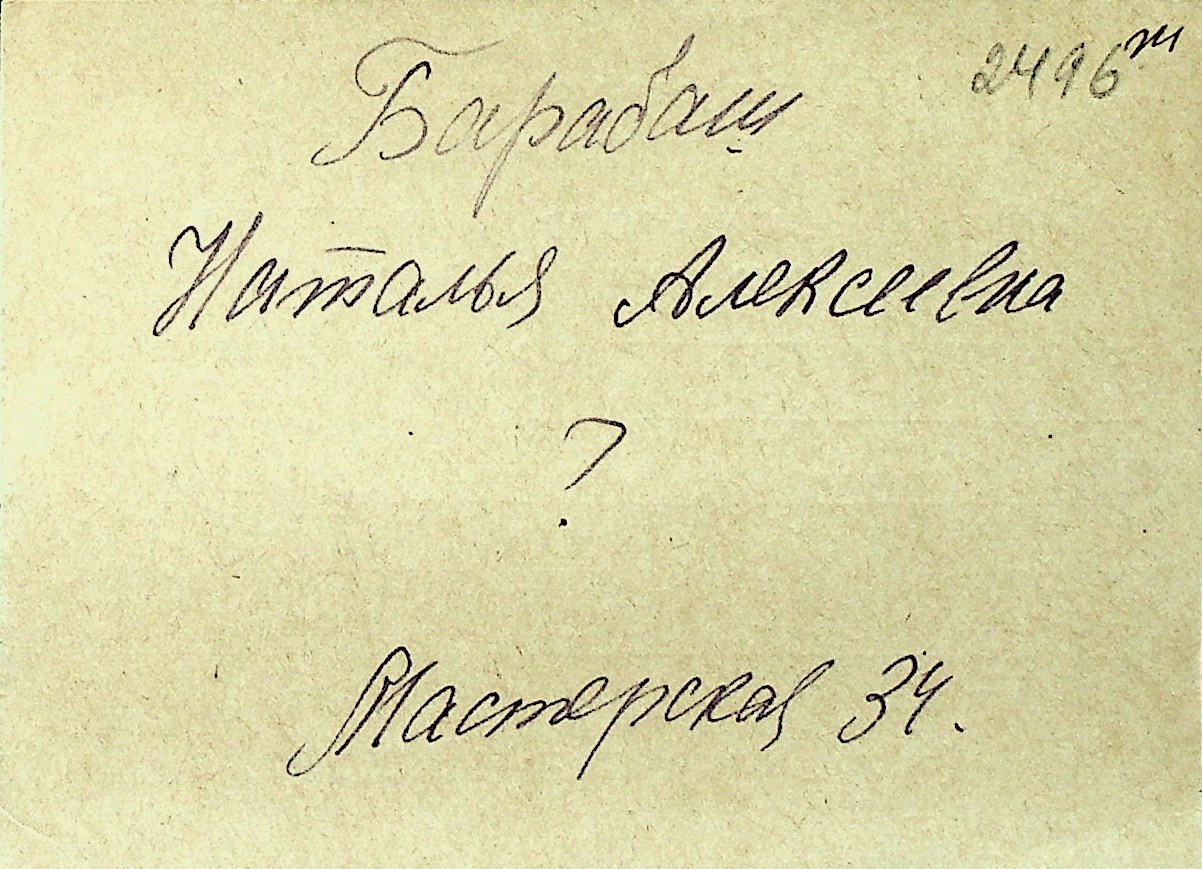 2496 т
Барабаш
Наталья Алексеевна
?
Мастерская 34.